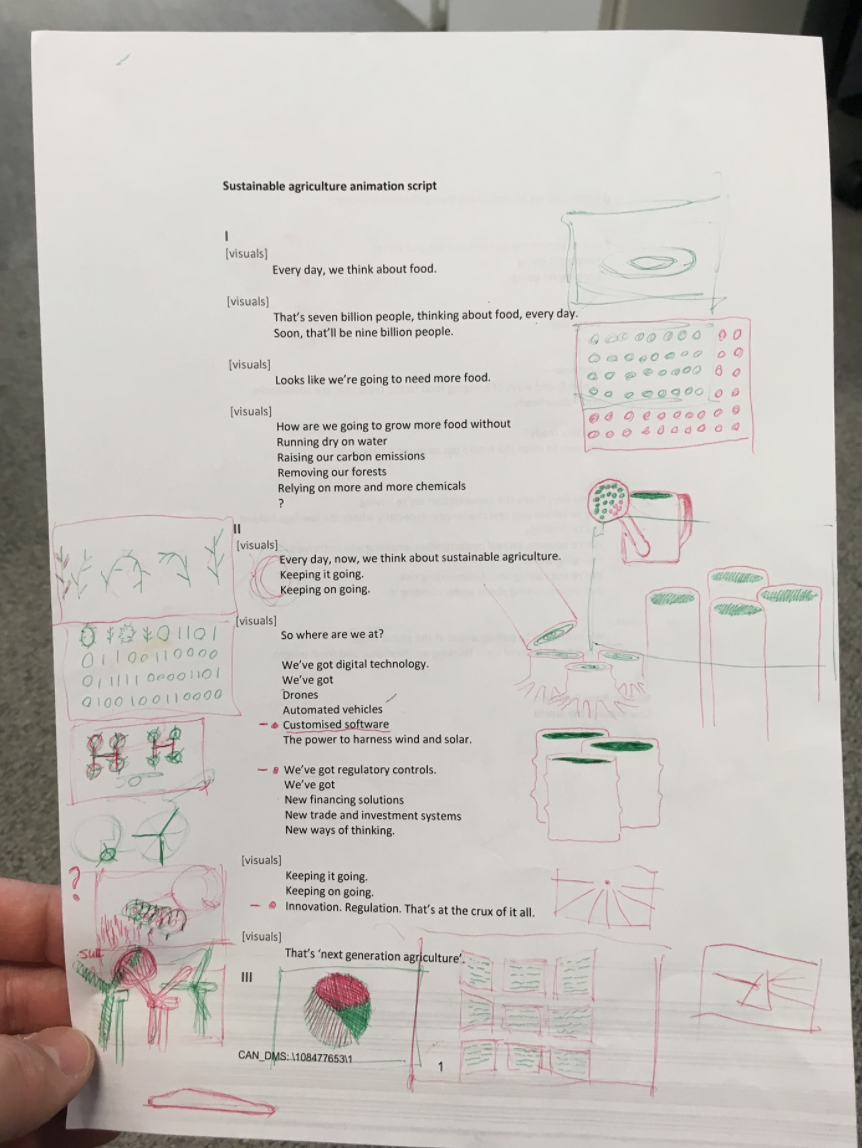 Sustainable agriculture animation script
I
[visuals]
Every day, we think about food.
[visuals]
That's seven billion people, thinking about food, every day.
Soon, that'll be nine billion people.
[visuals]
Looks like we're going to need more food.
[visuals]
How are we going to grow more food without
Running dry on water
Raising our carbon emissions
Removing our forests
Relying on more and more chemicals
?
II
[visuals]
Every day, now, we think about sustainable agriculture.
Keeping it going.
Keeping on going.
[visuals]
So where are we at?
We've got digital technology.
We've got
Drones
Automated vehicles
Customised software
The power to harness wind and solar.
We've got regulatory controls.
We've got
New financing solutions
New trade and investment systems
New ways of thinking.
[visuals]
Keeping it going.
Keeping on going.
Innovation. Regulation. That's at the crux of it all.
[visuals]
That's 'next generation agriculture'.
III
CAN_DMS: \108477653\1
1
01101
01100110000
01111100001101
0100100110000
?